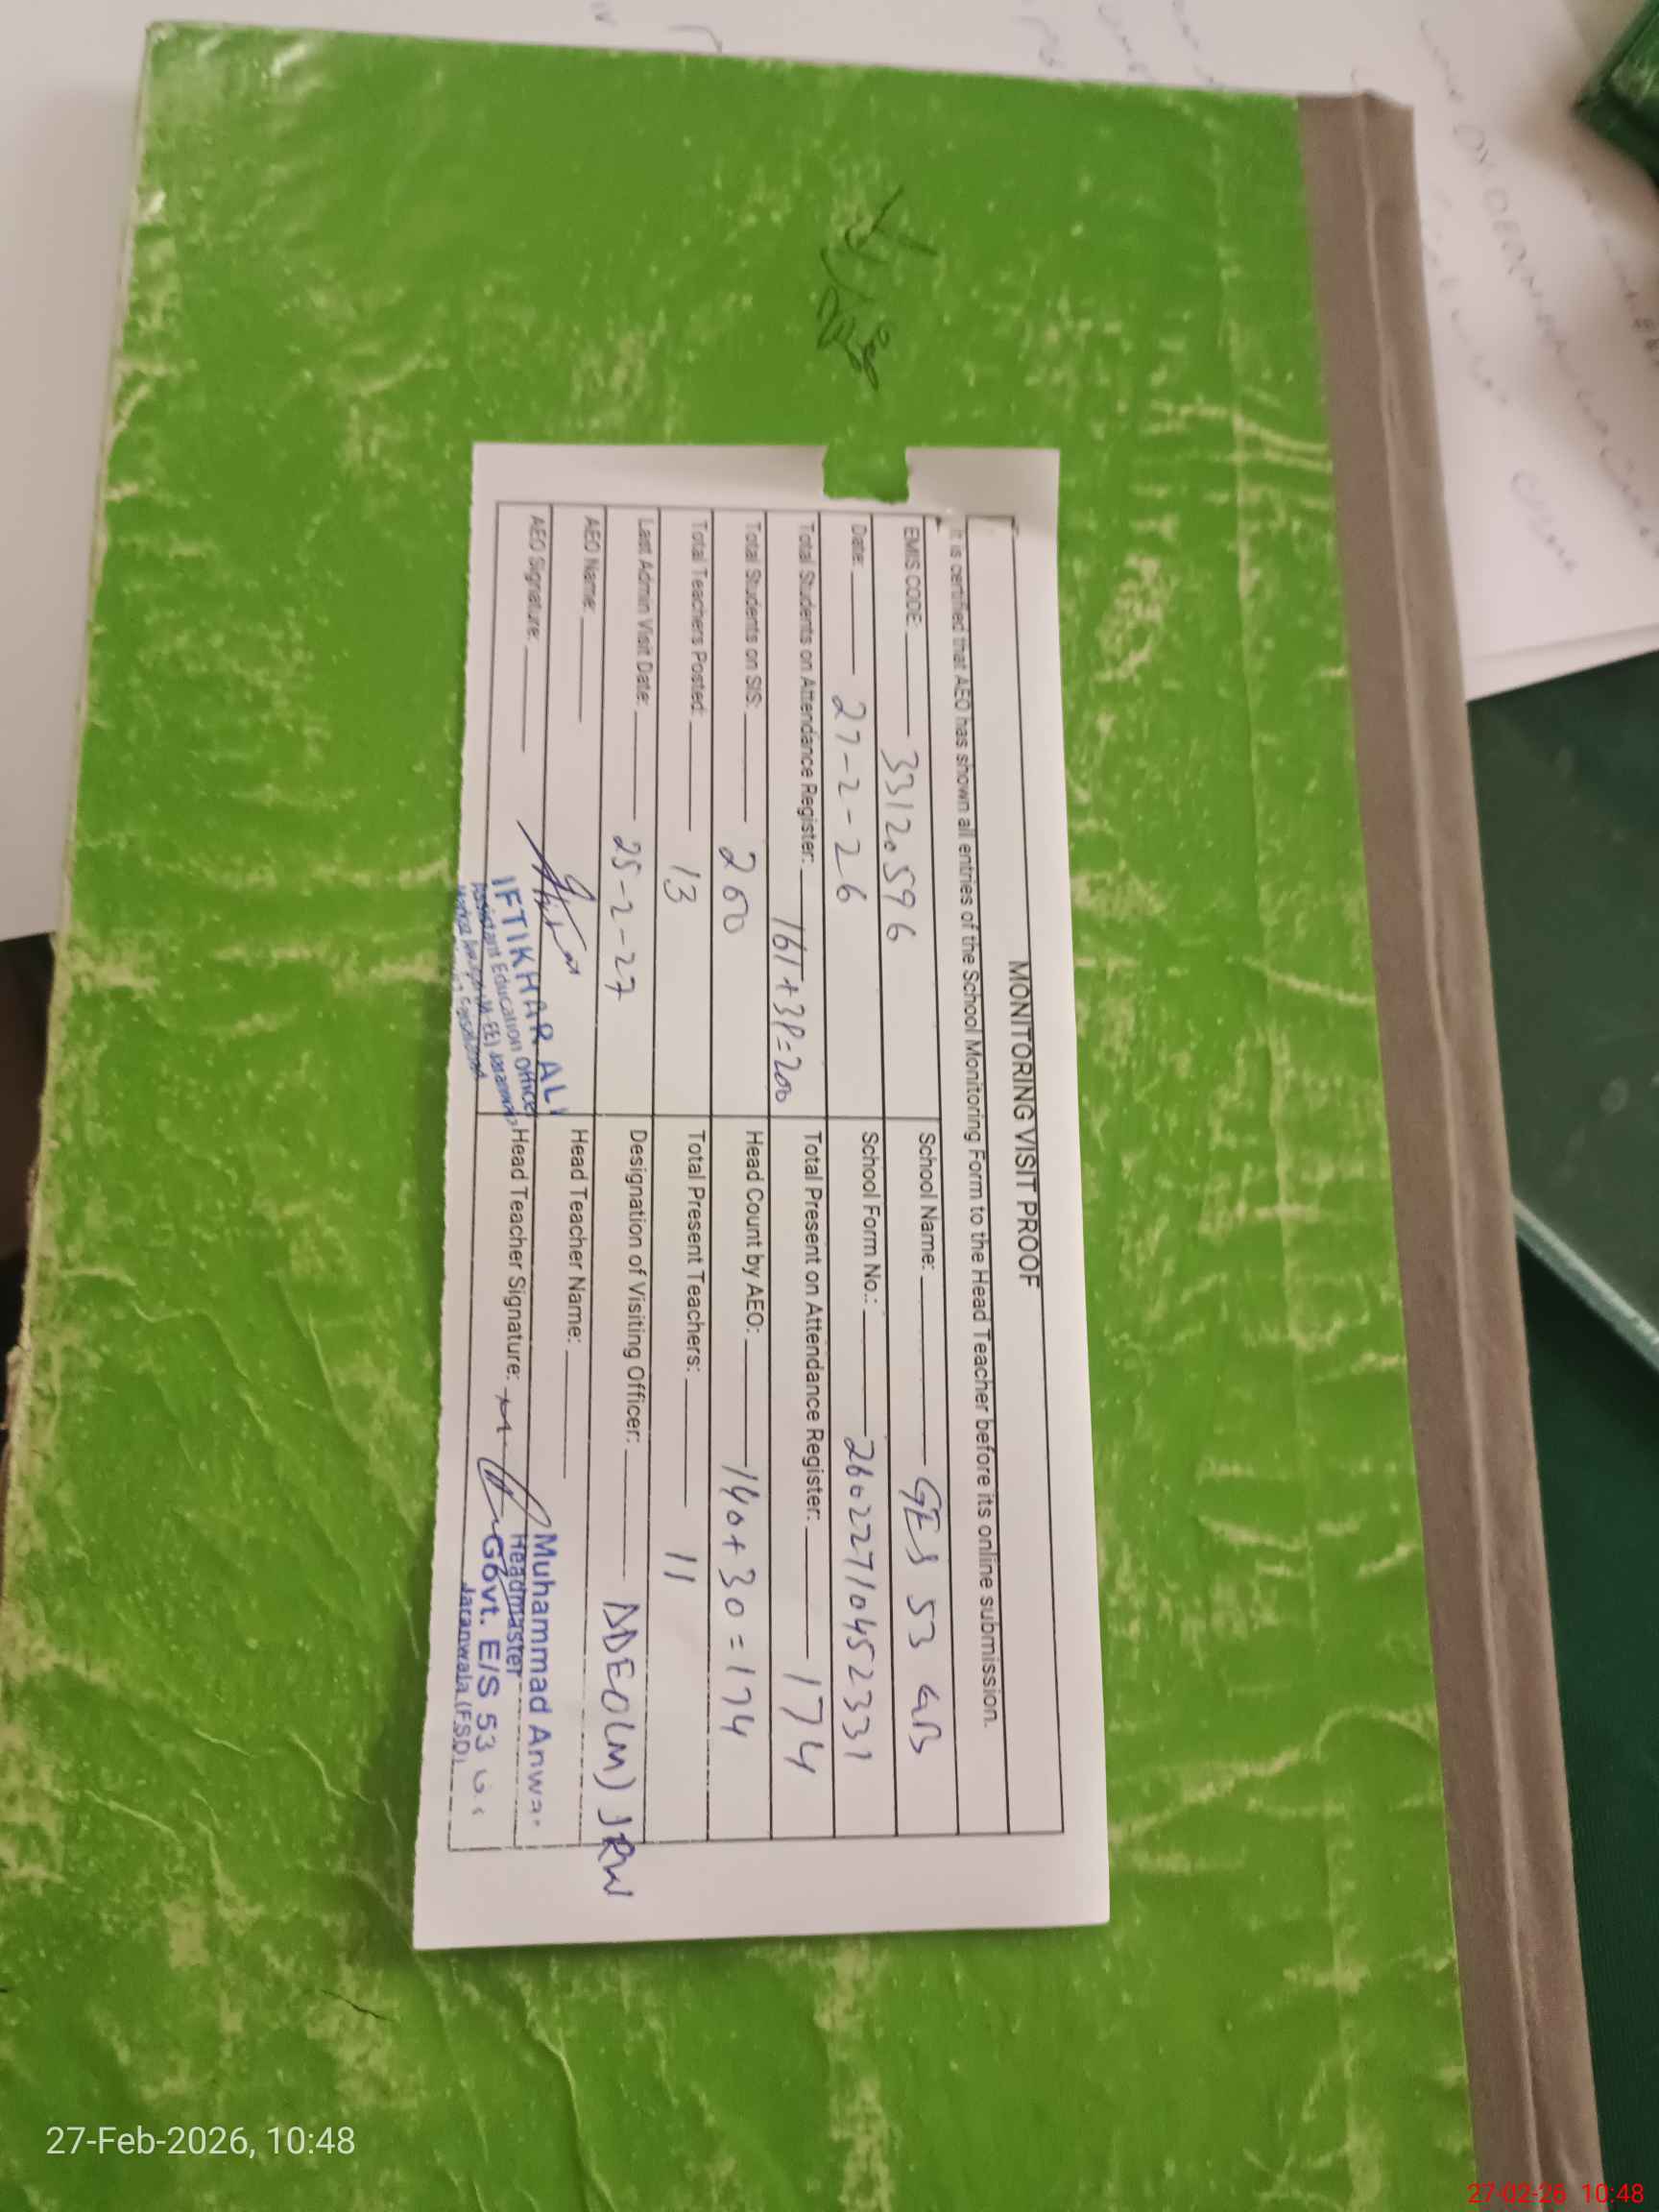 MONITORING VISIT PROOF
It is certified that AEO has shown all entries of the School Monitoring Form to the Head Teacher before its online submission.
EMIS CODE: 33120596 School Name: GES 53 GB
Date: 27-2-26 School Form No.: 26022710452331
Total Students on Attendance Register: =200 Total Present on Attendance Register: 174
Total Students on SIS: 200 Head Count by AEO: 140+30=174
Total Teachers Posted: 13 Total Present Teachers: 11
Last Admin Visit Date: 25-2-27 Designation of Visiting Officer: DDEO(M) JRW
AEO Name: Head Teacher Name:
AEO Signature: Head Teacher Signature:
IFTIKHAR ALI
Assistant Education Officer
Muhammad Anwar
Headmaster
Govt. E/S 53
Jaranwala (FSD)
27-Feb-2026, 10:48
27-02-26 10:48